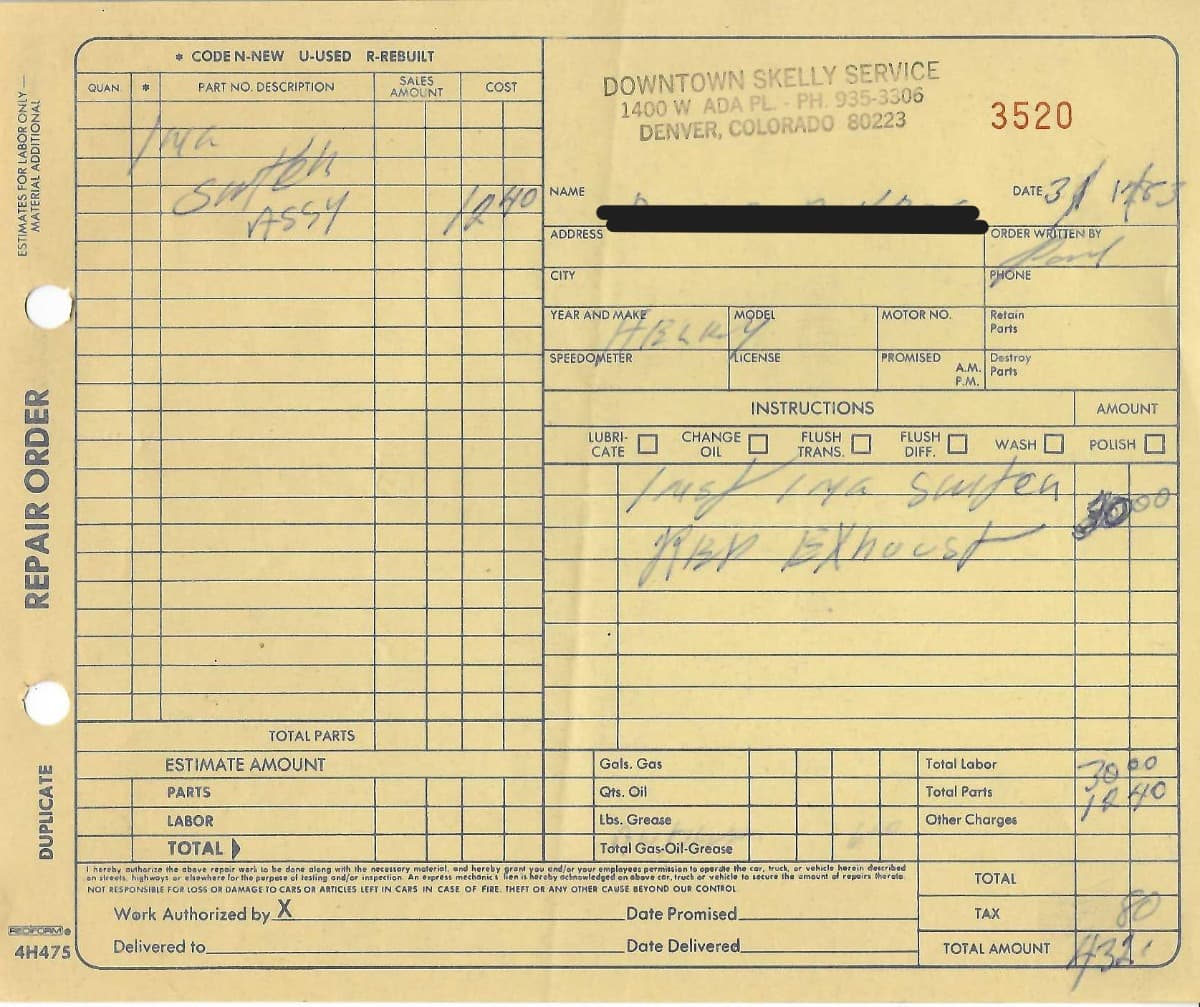 * CODE N-NEW U-USED R-REBUILT
QUAN. * PART NO. DESCRIPTION SALES AMOUNT COST
SWITCH
ASSY 12 40
ESTIMATES FOR LABOR ONLY —
MATERIAL ADDITIONAL
REPAIR ORDER
DUPLICATE
TOTAL PARTS
ESTIMATE AMOUNT
PARTS
LABOR
TOTAL
DOWNTOWN SKELLY SERVICE
1400 W ADA PL. - PH. 935-3306
DENVER, COLORADO 80223
3520
NAME DATE
ADDRESS ORDER WRITTEN BY
CITY PHONE
YEAR AND MAKE MODEL MOTOR NO. Retain Parts
SPEEDOMETER LICENSE PROMISED A.M. P.M. Destroy Parts
INSTRUCTIONS AMOUNT
LUBRI-CATE CHANGE OIL FLUSH TRANS. FLUSH DIFF. WASH POLISH
Inst switch 30 00
Exhaust
Gals. Gas Total Labor 30 00
Qts. Oil Total Parts 12 40
Lbs. Grease Other Charges
Total Gas-Oil-Grease
I hereby authorize the above repair work to be done along with the necessary material, and hereby grant you and/or your employees permission to operate the car, truck, or vehicle herein described
on streets, highways or elsewhere for the purpose of testing and/or inspection. An express mechanic's lien is hereby acknowledged on above car, truck or vehicle to secure the amount of repairs thereto.
NOT RESPONSIBLE FOR LOSS OR DAMAGE TO CARS OR ARTICLES LEFT IN CARS IN CASE OF FIRE, THEFT OR ANY OTHER CAUSE BEYOND OUR CONTROL.
TOTAL
Work Authorized by X Date Promised TAX 80
Delivered to Date Delivered TOTAL AMOUNT
REDIFORM
4H475